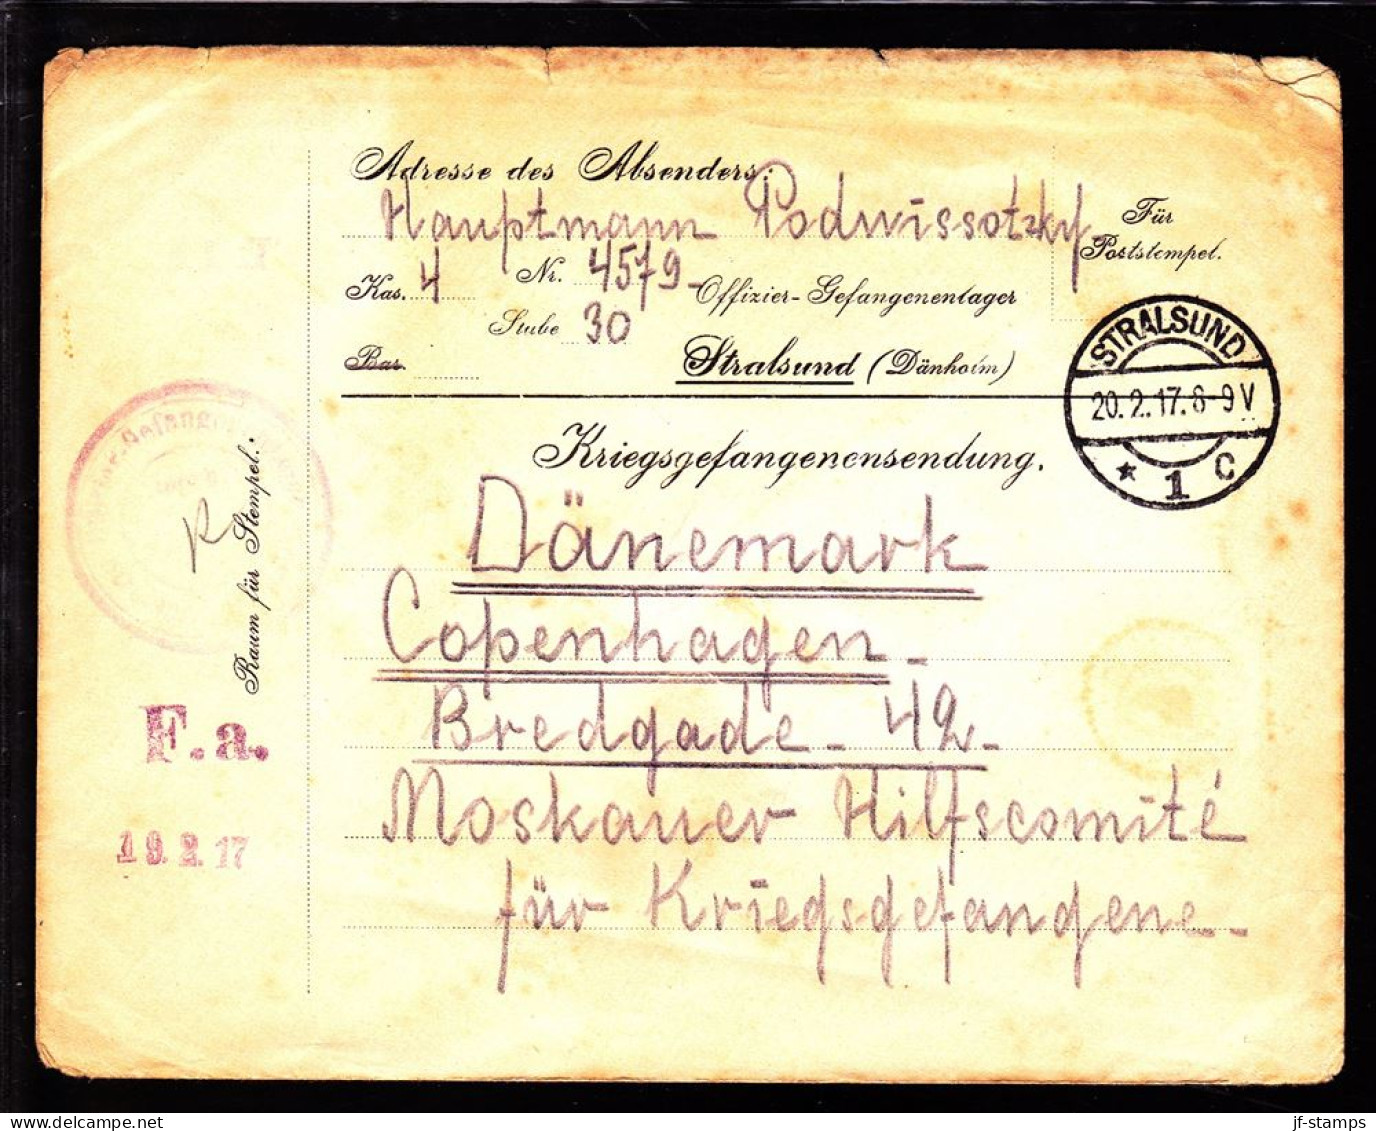 Adresse des Absenders:
Hauptmann Podwissotzky.
Für
Poststempel.
Kas. 4 Nr. 4579-
Offizier-Gefangenenlager
Stube 30
Bar.
Stralsund (Dänholm)
STRALSUND
20.2.17.8-9V
* 1 C
Kriegsgefangenensendung.
Dänemark
Copenhagen-
Bredgade-42-
Moskauer Hilfscomité
für Kriegsgefangene-
Raum für Stempel:
R
F.a.
19.2.17
jf-stamps